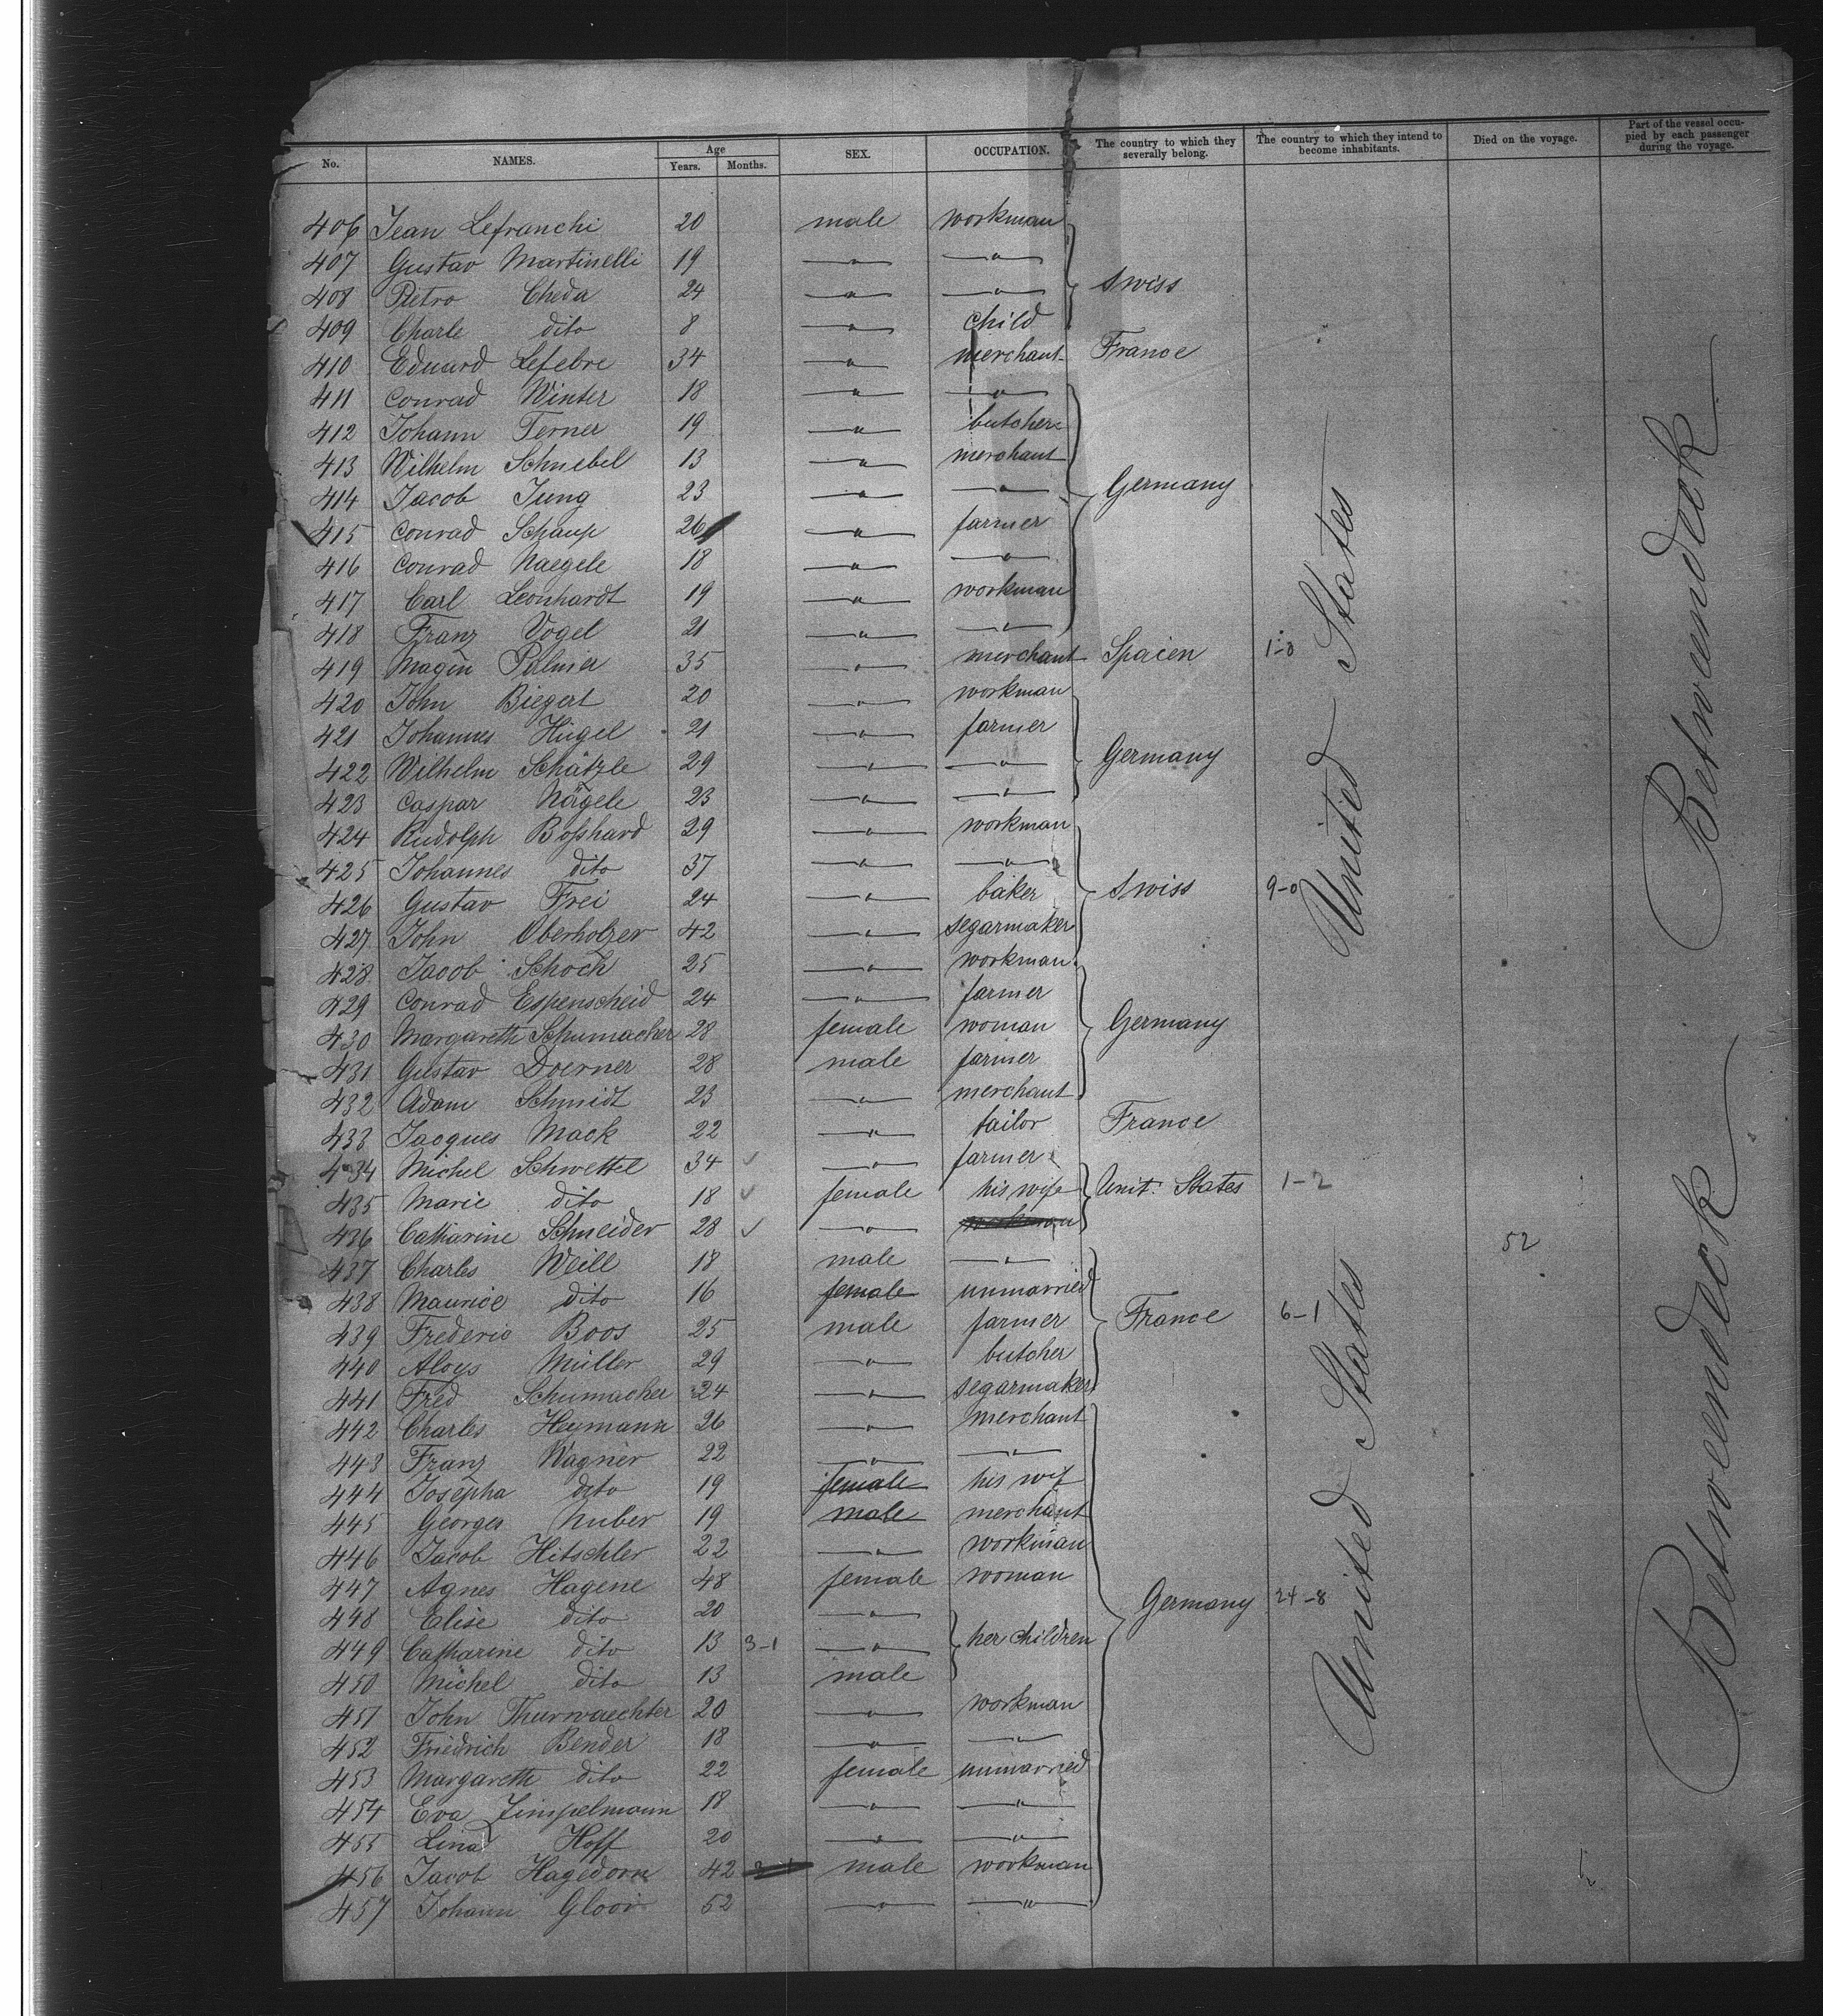 No. NAMES. Age Years. Months. SEX. OCCUPATION. The country to which they severally belong. The country to which they intend to become inhabitants. Died on the voyage. Part of the vessel occupied by each passenger during the voyage.
406 Jean Lefranchi 20 male workman
407 Gustav Martinelli 19 —"— —"—
408 Pietro Cheda 24 —"— —"— Swiss
409 Charle dito 8 —"— child
410 Eduard Lefebre 34 —"— merchant France
411 Conrad Winter 18 —"— —"—
412 Johann Ferner 19 —"— butcher
413 Wilhelm Schnebel 13 —"— merchant
414 Jacob Jung 23 —"— —"— Germany
415 Conrad Schaup 26 —"— farmer
416 Conrad Naegele 18 —"— —"—
417 Carl Leonhardt 19 —"— workman
418 Franz Vogel 21 —"— —"—
419 Magin Palmer 35 —"— merchant Spaien 1-0
420 John Biegert 20 —"— workman
421 Johannes Hügel 21 —"— farmer
422 Wilhelm Schätzle 29 —"— —"— Germany
423 Caspar Nägele 23 —"— —"—
424 Rudolph Boßhard 29 —"— workman
425 Johannes dito 37 —"— —"—
426 Gustav Frei 24 —"— baker Swiss 9-0 United States Betweendeck
427 John Oberholzer 42 —"— segarmaker
428 Jacob Schoch 25 —"— workman
429 Conrad Espenscheid 24 —"— farmer
430 Margareth Schumacher 28 female woman Germany
431 Gustav Doerner 28 male farmer
432 Adam Schmidt 23 —"— merchant
433 Jacques Mack 22 —"— tailor France
434 Michel Schwettel 34 —"— farmer
435 Marie dito 18 female his wife Unit. States 1-2
436 Catharine Schneider 28 —"— workman
437 Charles Weill 18 male —"— 52
438 Maurice dito 16 female unmarried
439 Frederic Boos 25 male farmer France 6-1
440 Aloys Müller 29 —"— butcher
441 Fred Schumacher 24 —"— segarmaker
442 Charles Heymann 26 —"— merchant
443 Franz Wagner 22 —"— —"—
444 Josepha dito 19 female his wif
445 Georges Huber 19 male merchant
446 Jacob Hitschler 22 —"— workman
447 Agnes Hagene 48 female woman
448 Elise dito 20 —"— Germany 24-8
449 Catharine dito 13 3-1 —"— her children
450 Michel dito 13 male
451 John Thurwaechter 20 —"— workman
452 Friedrich Bender 18 —"— —"—
453 Margareth dito 22 female unmarried
454 Eva Zimpelmann 18 —"— —"—
455 Lina Hoff 20 —"— —"—
456 Jacob Hagedorn 42 male workman
457 Johann Gloor 52 —"— —"—
United States Betweendeck